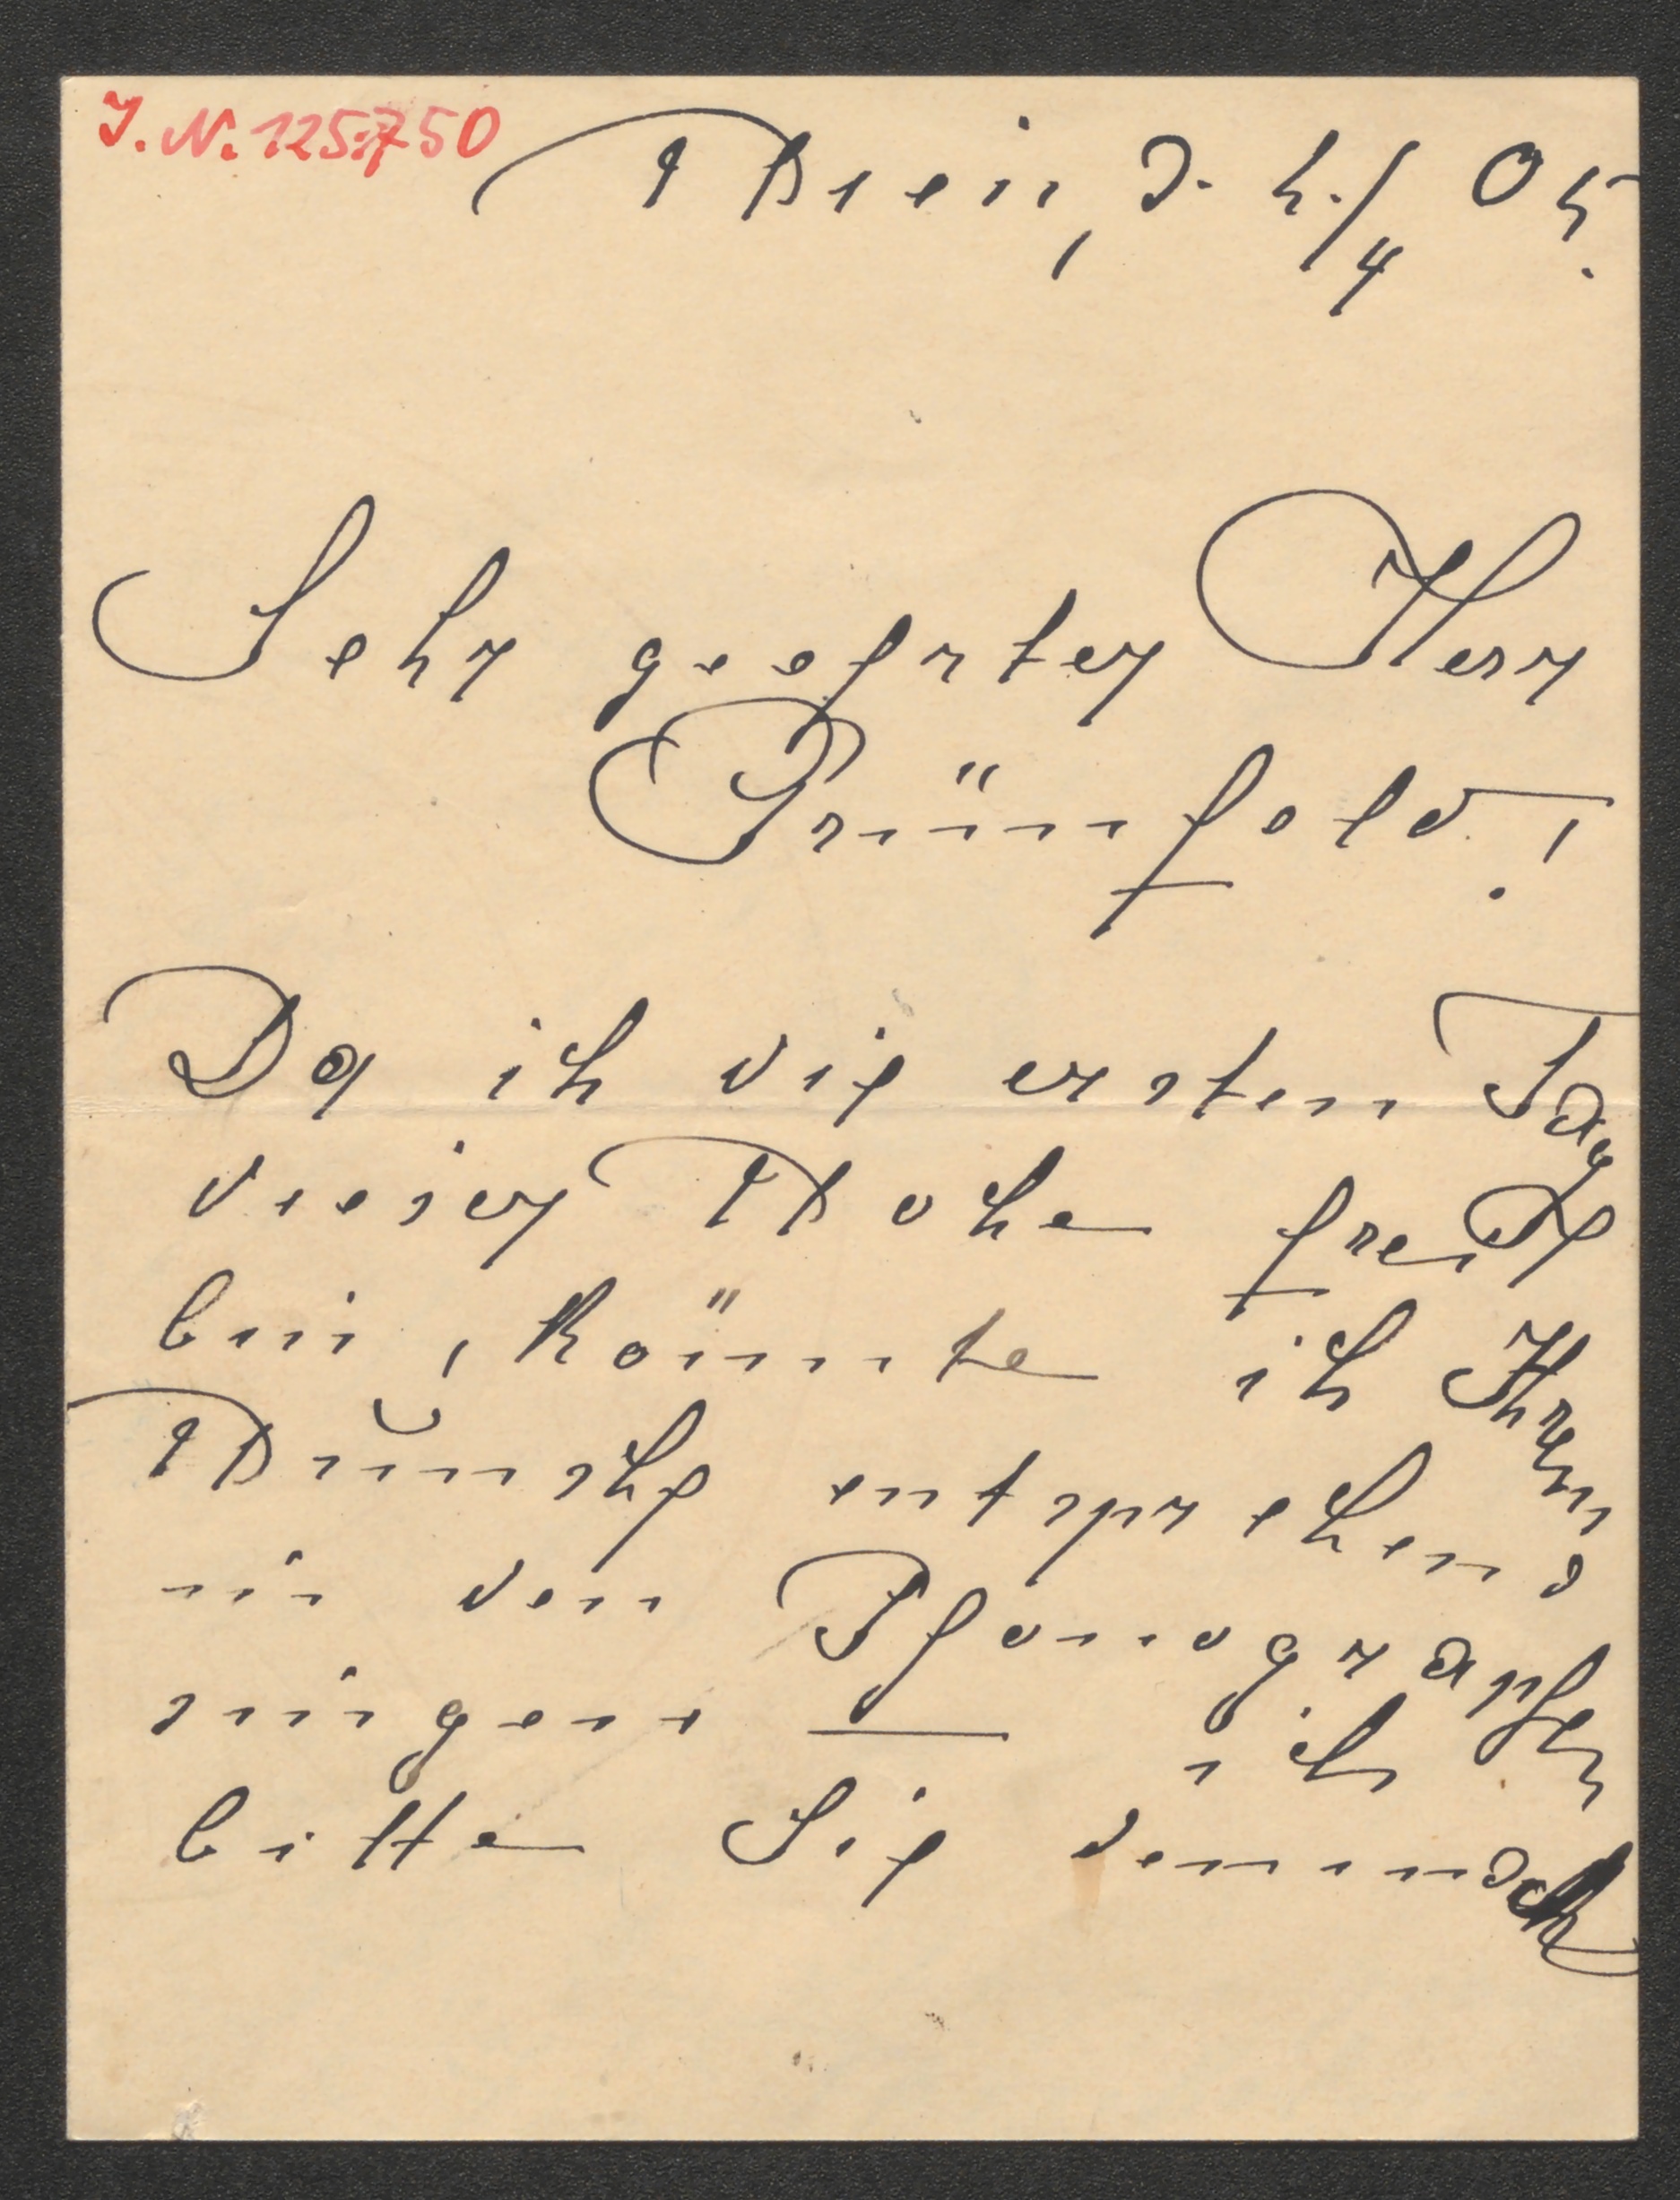 J. N. 125.750
Wien, d. 5./4 05.
Sehr geehrter Herr
Grünfeld!
Da ich die ersten Tag
dieser Woche frei
bin, könnte ich Ihrem
Wunsche entsprechend
in den Phonographen
singen — ich
bitte Sie demnach